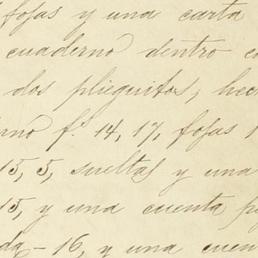 fojas y una carta
cuaderno dentro co
dos plieguitos, hec
rno fs. 14, 17, fojas 1
15, 5, sueltas y una
15, y una cuenta p
da - 16, y una cuen